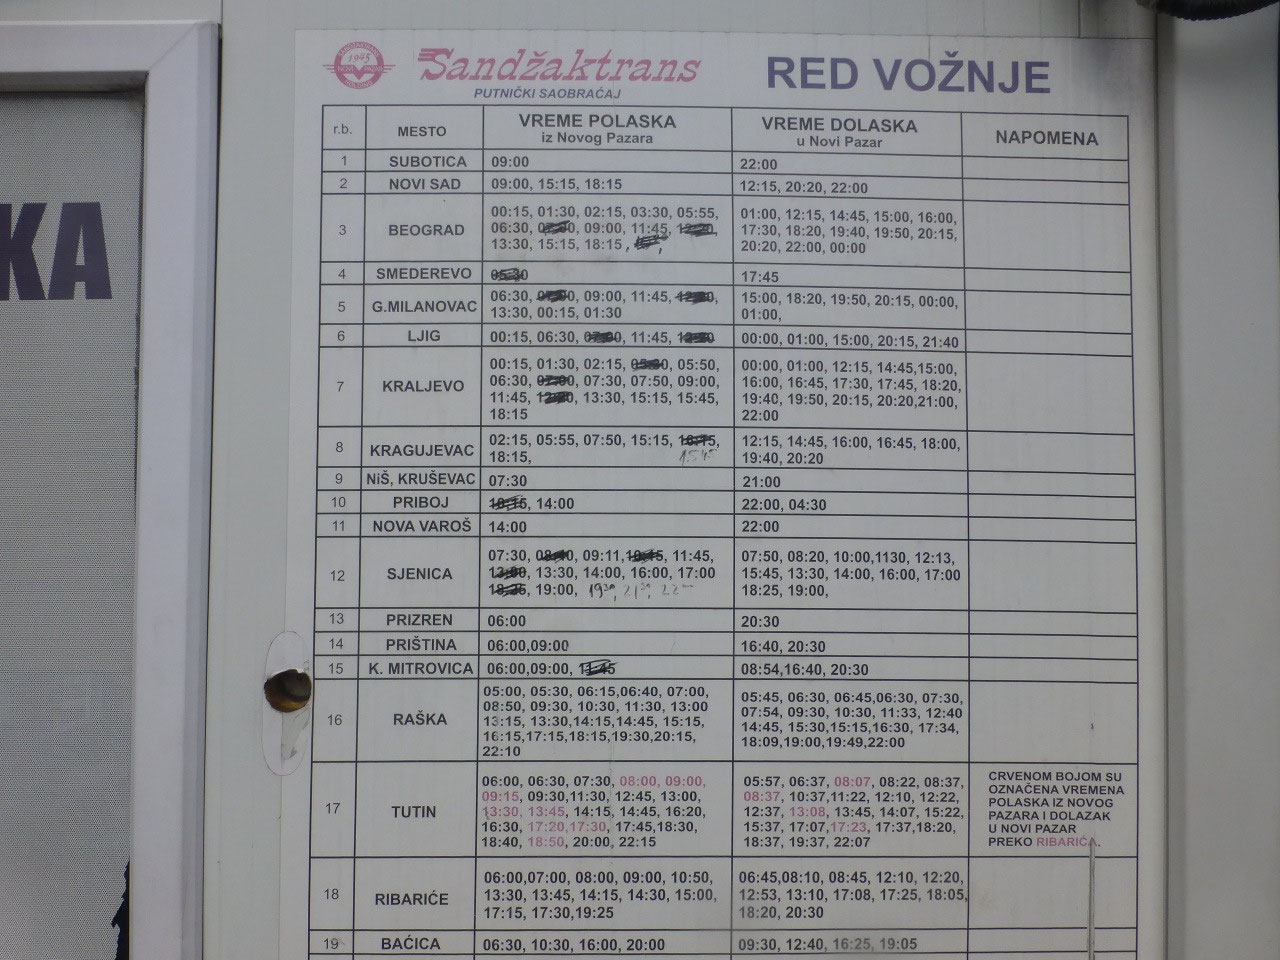 1945
Sandžaktrans
PUTNIČKI SAOBRAĆAJ
RED VOŽNJE
r.b. MESTO VREME POLASKA iz Novog Pazara VREME DOLASKA u Novi Pazar NAPOMENA
1 SUBOTICA 09:00 22:00
2 NOVI SAD 09:00, 15:15, 18:15 12:15, 20:20, 22:00
3 BEOGRAD
00:15, 01:30, 02:15, 03:30, 05:55,
06:30, 09:00, 11:45,
13:30, 15:15, 18:15,
01:00, 12:15, 14:45, 15:00, 16:00,
17:30, 18:20, 19:40, 19:50, 20:15,
20:20, 22:00, 00:00
4 SMEDEREVO 05:30 17:45
5 G.MILANOVAC
06:30, 09:00, 11:45,
13:30, 00:15, 01:30
15:00, 18:20, 19:50, 20:15, 00:00,
01:00,
6 LJIG 00:15, 06:30, 11:45, 00:00, 01:00, 15:00, 20:15, 21:40
7 KRALJEVO
00:15, 01:30, 02:15, 05:30, 05:50,
06:30, 07:30, 07:50, 09:00,
11:45, 13:30, 15:15, 15:45,
18:15
00:00, 01:00, 12:15, 14:45,15:00,
16:00, 16:45, 17:30, 17:45, 18:20,
19:40, 19:50, 20:15, 20:20,21:00,
22:00
8 KRAGUJEVAC
02:15, 05:55, 07:50, 15:15, 16:15,
18:15, 1545
12:15, 14:45, 16:00, 16:45, 18:00,
19:40, 20:20
9 NiŠ, KRUŠEVAC 07:30 21:00
10 PRIBOJ 14:00 22:00, 04:30
11 NOVA VAROŠ 14:00 22:00
12 SJENICA
07:30, 09:11, 11:45,
13:30, 14:00, 16:00, 17:00
19:00, 19³⁰, 21³⁰, 22
07:50, 08:20, 10:00,1130, 12:13,
15:45, 13:30, 14:00, 16:00, 17:00
18:25, 19:00,
13 PRIZREN 06:00 20:30
14 PRIŠTINA 06:00,09:00 16:40, 20:30
15 K. MITROVICA 06:00,09:00, 11:45 08:54,16:40, 20:30
16 RAŠKA
05:00, 05:30, 06:15,06:40, 07:00,
08:50, 09:30, 10:30, 11:30, 13:00
13:15, 13:30,14:15,14:45, 15:15,
16:15,17:15,18:15,19:30,20:15,
22:10
05:45, 06:30, 06:45,06:30, 07:30,
07:54, 09:30, 10:30, 11:33, 12:40
14:45, 15:30,15:15,16:30, 17:34,
18:09,19:00,19:49,22:00
17 TUTIN
06:00, 06:30, 07:30, 08:00, 09:00,
09:15, 09:30,11:30, 12:45, 13:00,
13:30, 13:45, 14:15, 14:45, 16:20,
16:30, 17:20,17:30, 17:45,18:30,
18:40, 18:50, 20:00, 22:15
05:57, 06:37, 08:07, 08:22, 08:37,
08:37, 10:37,11:22, 12:10, 12:22,
12:37, 13:08, 13:45, 14:07, 15:22,
15:37, 17:07,17:23, 17:37,18:20,
18:37, 19:37, 22:07
CRVENOM BOJOM SU
OZNAČENA VREMENA
POLASKA IZ NOVOG
PAZARA I DOLAZAK
U NOVI PAZAR
PREKO RIBARIĆA.
18 RIBARIĆE
06:00,07:00, 08:00, 09:00, 10:50,
13:30, 13:45, 14:15, 14:30, 15:00,
17:15, 17:30,19:25
06:45,08:10, 08:45, 12:10, 12:20,
12:53, 13:10, 17:08, 17:25, 18:05,
18:20, 20:30
19 BAĆICA 06:30, 10:30, 16:00, 20:00 09:30, 12:40, 16:25, 19:05
KA